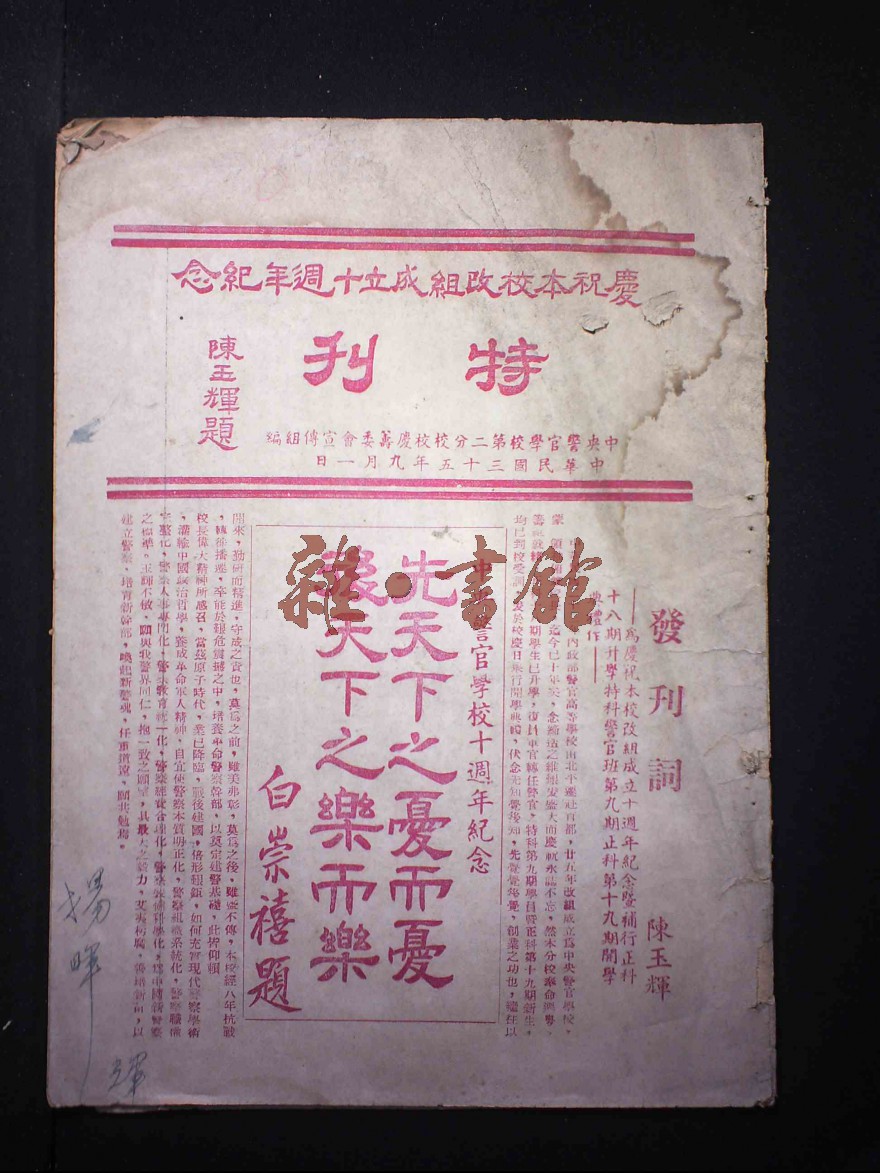 慶祝本校改組成立十週年紀念
特刊
陳玉輝題
中央警官學校第二分校校慶籌委會宣傳組編
中華民國三十五年九月一日
發刊詞
——為慶祝本校改組成立十週年紀念暨補行正科
十八期升學特科警官班第九期正科第十九期開學
作——
陳玉輝
內政部警官高等學校由北平遷社首都，廿五年改組成立為中央警官學校，
蒙
迄今已十年矣，念締造之維艱，
期學生已升學，復員軍官轉任警官，特科第九期學員暨正科第十九期新生，
均已到校受訓，
於校慶日舉行開學典禮，伏念先知覺後知，先覺覺後覺，創業之功也，繼往以
中央警官學校十週年紀念
先天下之憂而憂
後天下之樂而樂
白崇禧題
開來，勤研而精進，守成之責也，莫為之前，雖美弗彰，莫為之後，雖盛不傳，本校經八年抗戰
，輾轉播遷，卒能於艱危震撼之中，培養革命警察幹部，以奠定建警基礎，此皆仰賴
校長偉大精神所感召，當茲原子時代，業已降臨，戰後建國，倍形艱鉅，如何充實現代警察學術
，溝通中國政治哲學，養成革命軍人精神，自宜使警察本質明正化，警察組織系統化，警察職
化，警察人事專門化，警察教育統一化，警察經費合理化，警察業務科學化，為中國新警察
之標準。玉輝不敏，願與我警界同仁，抱一致之願望，具最大之毅力，
以
建立警察，培育新幹部，喚起新警魂，任重道遠，願共勉焉。
雜·書館
楊暉
輝